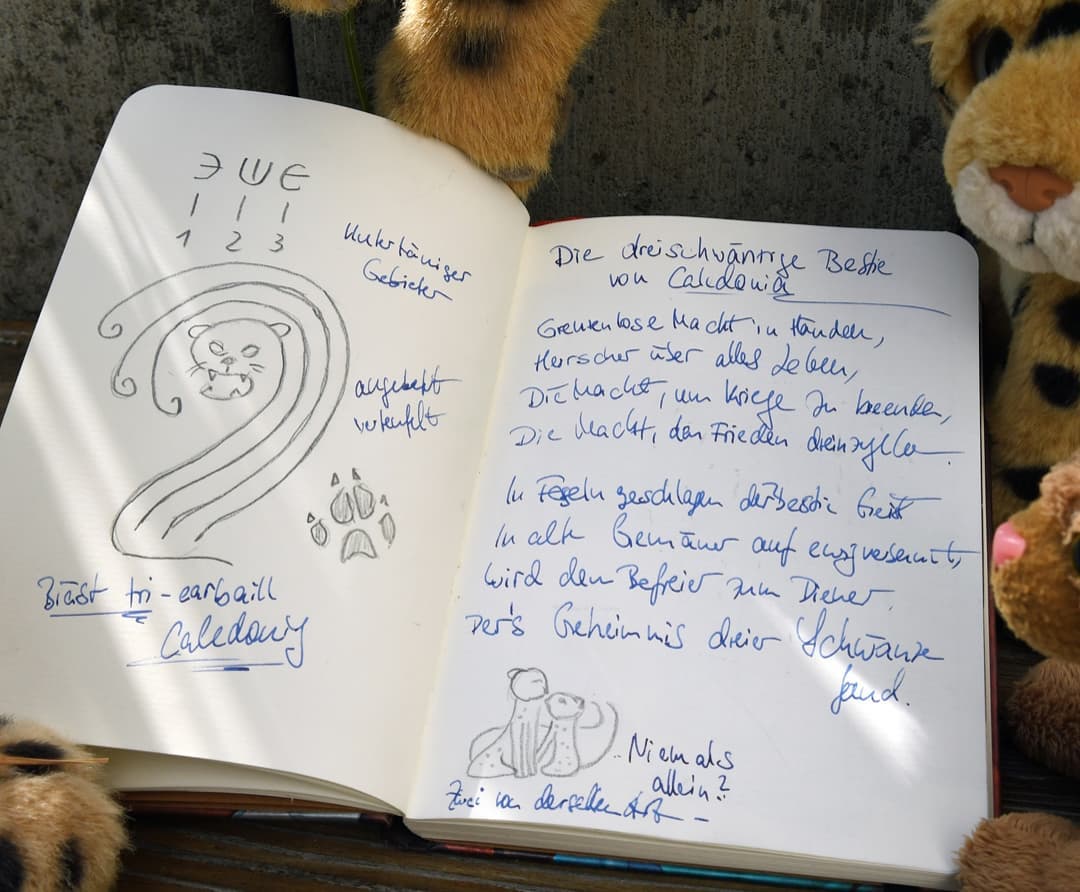 Э Ш Є
1 2 3
Gebieter
angebetet
verteufelt
Biást tri-earbaill
Caledonia
Die dreischwänzige Bestie
von Caledonia
Grenzenlose Macht in Händen,
Herrscher über alles Leben,
Die Macht, um Kriege zu beenden,
Die Macht, den Frieden
In geschlagen Geist
In alte Gemäuer auf ewig versenkt,
wird dem Befreier zum Diener,
Der's Geheimnis dreier Schwänze
fand.
Niemals
allein?
Zwei von derselben Art –